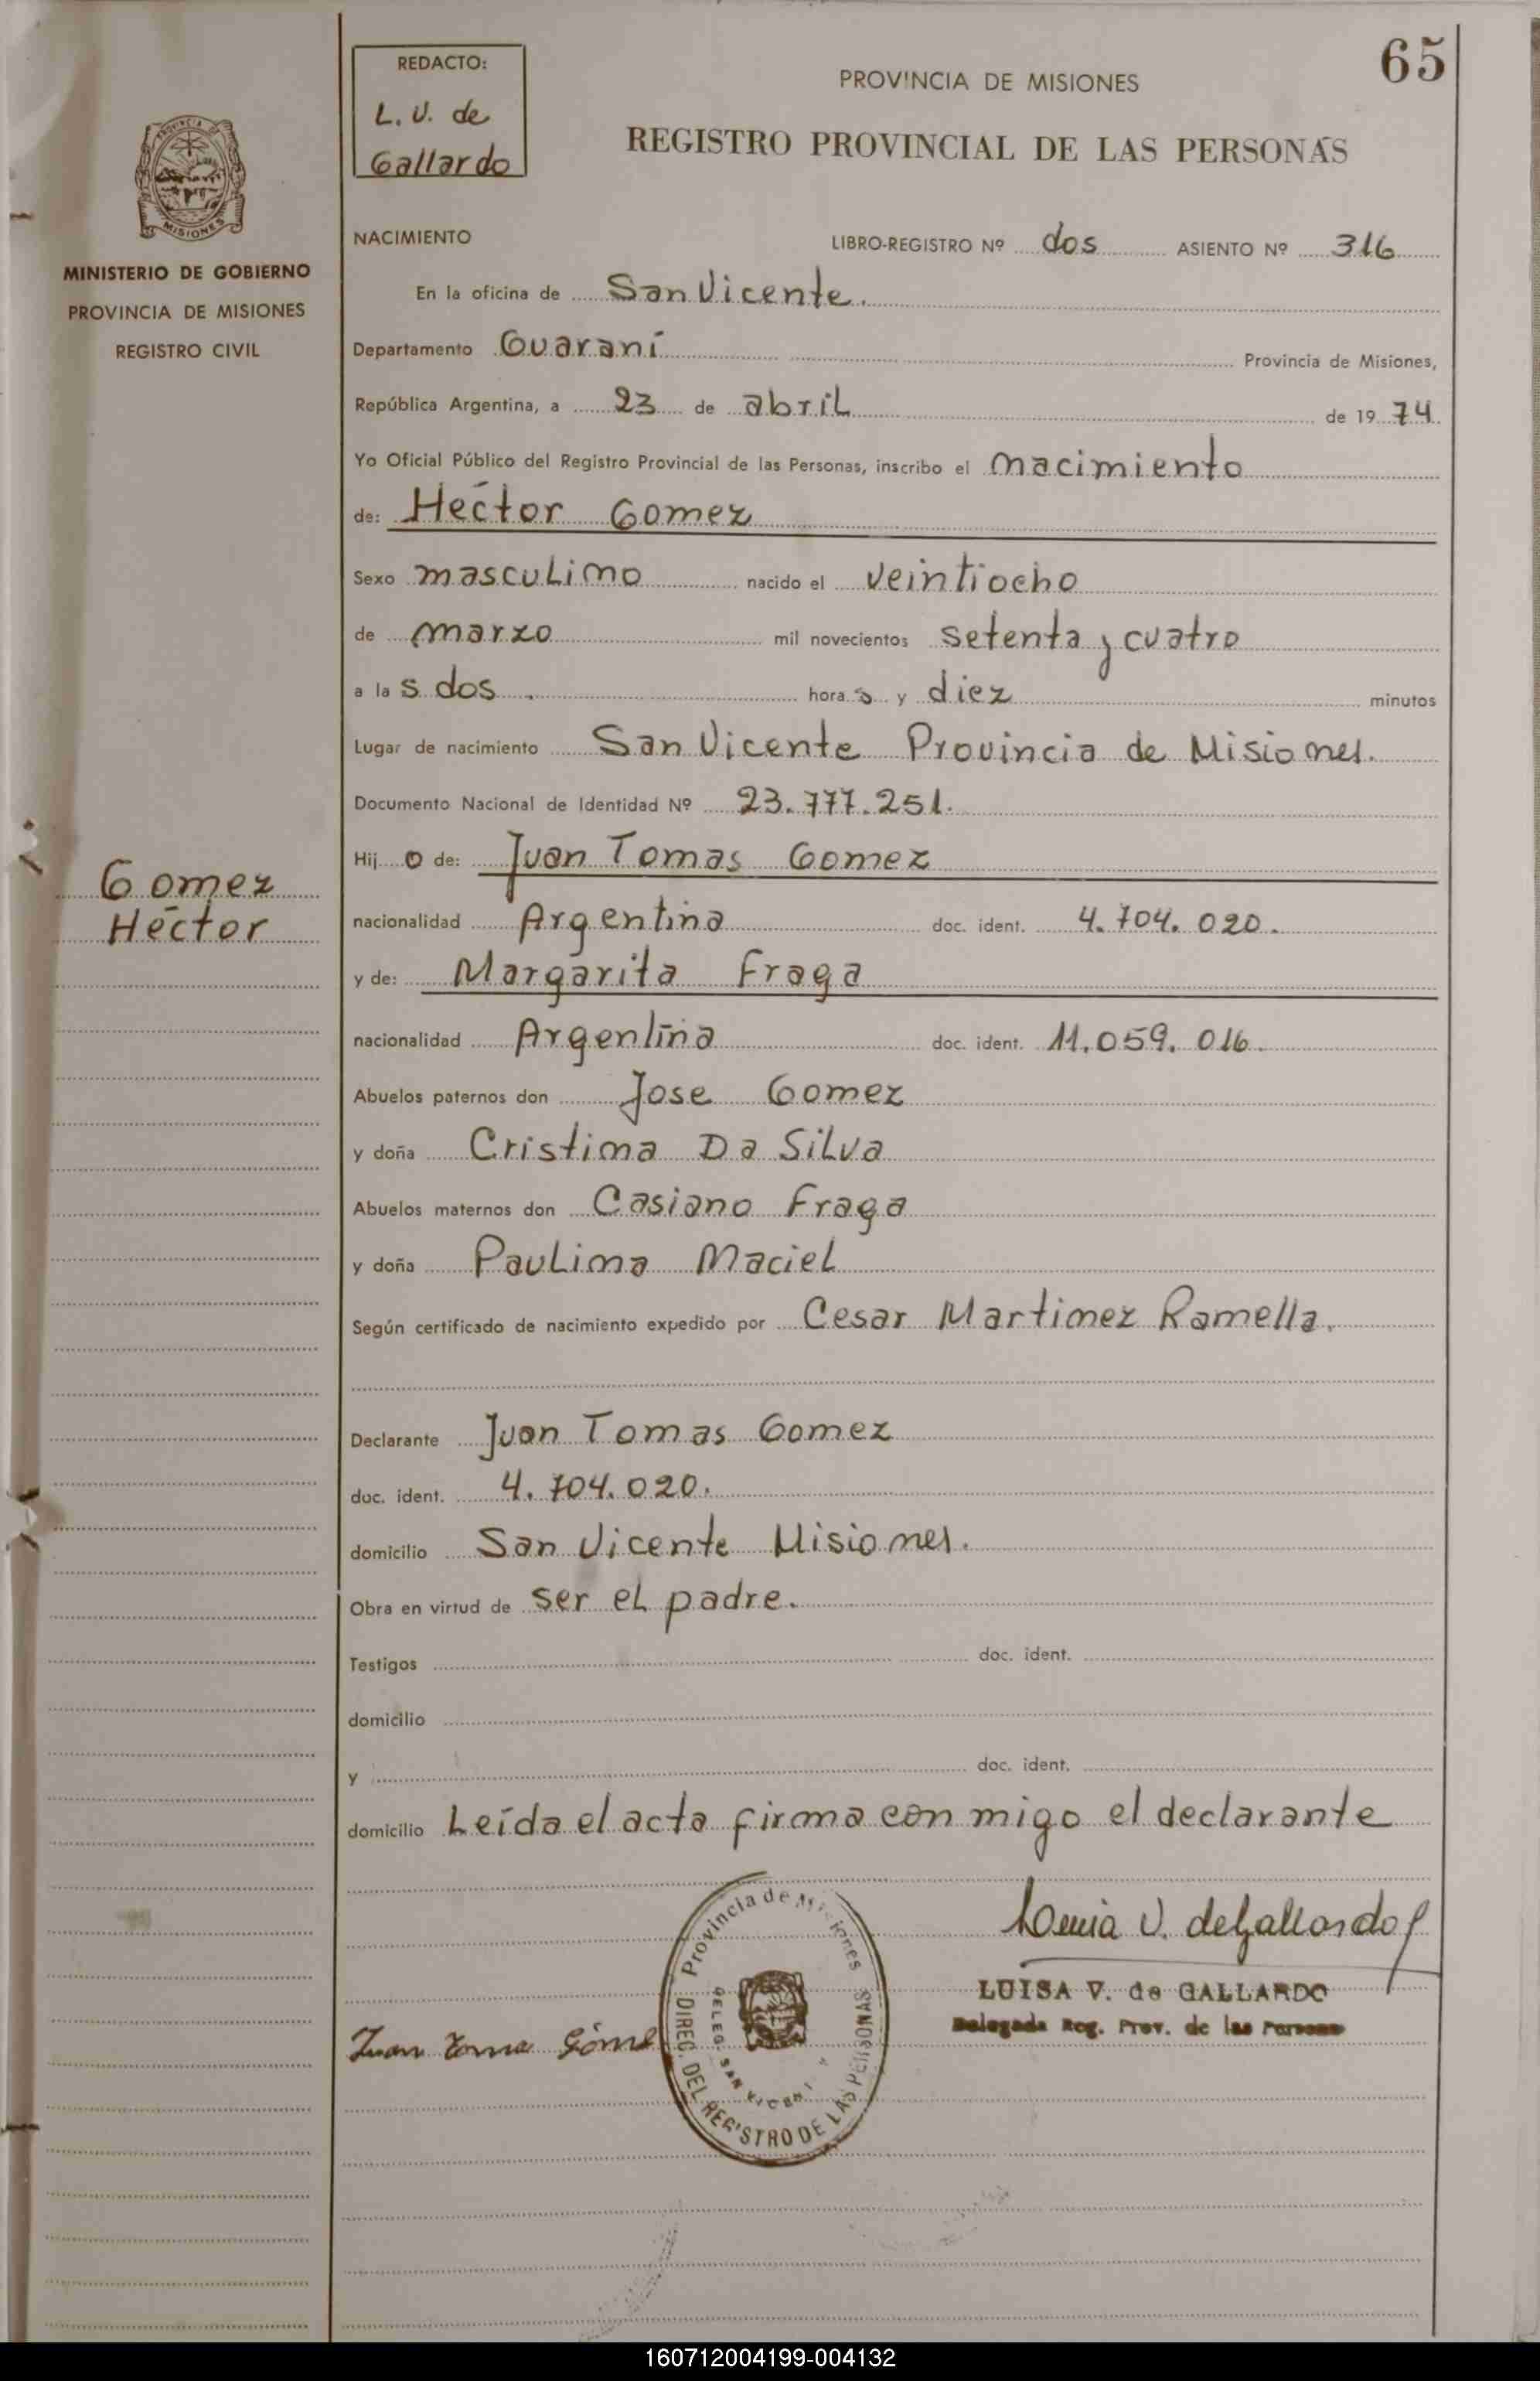 65
REDACTO:
L. V. de
Gallardo
PROVINCIA DE MISIONES
REGISTRO PROVINCIAL DE LAS PERSONAS
PROVINCIA DE
MISIONES
MINISTERIO DE GOBIERNO
PROVINCIA DE MISIONES
REGISTRO CIVIL
NACIMIENTO
LIBRO-REGISTRO Nº dos ASIENTO Nº 316
En la oficina de San Vicente.
Departamento Guaraní Provincia de Misiones,
República Argentina, a 23 de abril de 19 74.
Yo Oficial Público del Registro Provincial de las Personas, inscribo el nacimiento
de: Hector Gomez
Sexo masculino nacido el veintiocho
de marzo mil novecientos setenta y cuatro
a la s dos. hora s y diez minutos
Lugar de nacimiento San Vicente Provincia de Misiones.
Documento Nacional de Identidad Nº 23.777.251.
Hij o de: Juan Tomas Gomez
Gomez
Héctor
nacionalidad Argentina doc. ident. 4.704.020.
y de: Margarita Fraga
nacionalidad Argentina doc. ident. 11.059.016.
Abuelos paternos don Jose Gomez
y doña Cristina Da Silva
Abuelos maternos don Casiano Fraga
y doña Paulina Maciel
Según certificado de nacimiento expedido por Cesar Martinez Ramella.
Declarante Juan Tomas Gomez
doc. ident. 4.704.020.
domicilio San Vicente Misiones.
Obra en virtud de ser el padre.
Testigos doc. ident.
domicilio
y doc. ident.
domicilio Leída el acta firma con migo el declarante
Luisa V. de Gallardo
LUISA V. de GALLARDO
Delegada Reg. Prov. de las Personas
Juan Toma Gómez
Provincia de Misiones
DIREC. DEL REGISTRO DE LAS PERSONAS
DELEG. SAN VICENT
160712004199-004132